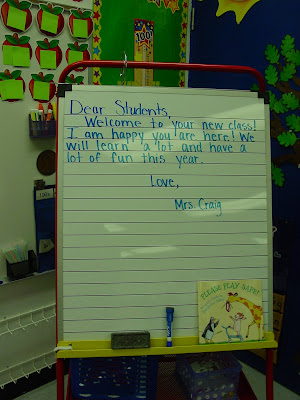 100
Dear Students,
Welcome to your new class!
I am happy you are here! We
will learn a lot and have a
lot of fun this year.
Love,
Mrs. Craig
PLEASE PLAY SAFE!